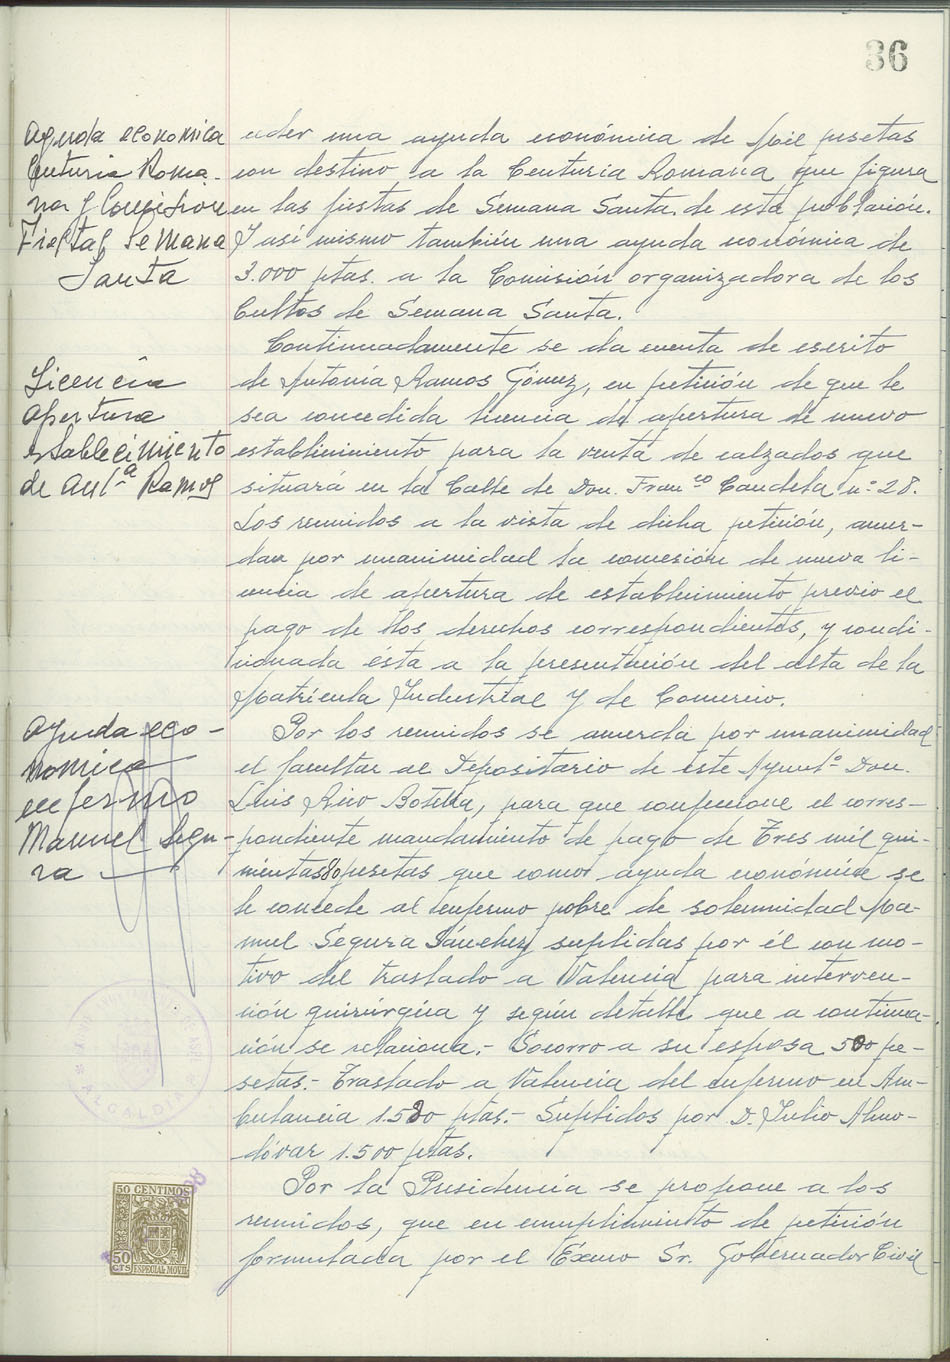 36
Ayuda economica
Centuria Roma-
na y Comision
Fiestas Semana
Santa
ceder una ayuda económica de Mil pesetas
con destino a la Centuria Romana que figura
en las fiestas de Semana Santa de esta población.
Y así mismo también una ayuda económica de
3.000 ptas. a la Comisión organizadora de los
Cultos de Semana Santa.
Licencia
apertura
establecimiento
de Antª Ramos
Continuadamente se da cuenta de escrito
de Antonia Ramos Gómez, en petición de que le
sea concedida licencia de apertura de nuevo
establecimiento para la venta de calzados que
situará en la Calle de Don Francº Candela nº 28.
Los reunidos a la vista de dicha petición, acuer-
dan por unanimidad la concesión de nueva li-
cencia de apertura de establecimiento previo el
pago de los derechos correspondientes, y condi-
cionada ésta a la presentación del alta de la
Matrícula Industrial y de Comercio.
Ayuda eco-
nomica
enfermo
Manuel Segu-
ra
Por los reunidos se acuerda por unanimidad
el facultar al Depositario de este Ayuntº Don
Luis Rico Botella, para que confeccione el corres-
pondiente mandamiento de pago de Tres mil qui-
nientas 80 pesetas que como ayuda económica se
le concede al enfermo pobre de solemnidad Ma-
nuel Segura Sánchez suplidas por él con mo-
tivo del traslado a Valencia para interven-
ción quirúrgica y según detalle que a continua-
ción se relaciona.- Socorro a su esposa 500 pe-
setas.- Traslado a Valencia del enfermo en Am-
bulancia 1.580 ptas.- Suplidos por D. Julio Almo-
dóvar 1.500 ptas.
Por la Presidencia se propone a los
reunidos, que en cumplimiento de petición
formulada por el Excmo Sr. Gobernador Civil
ALCALDIA
50 CENTIMOS
50
CTS
ESPECIAL MOVIL